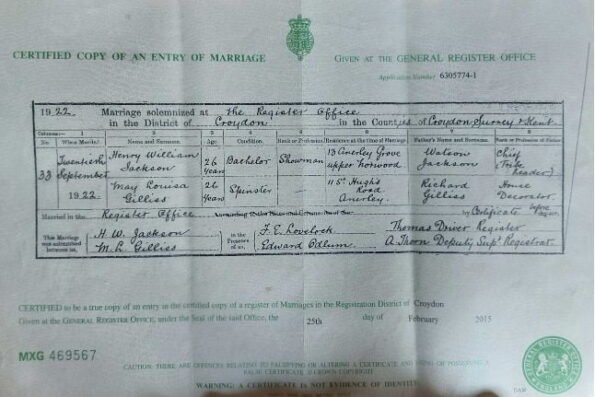 CERTIFIED COPY OF AN ENTRY OF MARRIAGE
GIVEN AT THE GENERAL REGISTER OFFICE
Application Number 6305774-1
1922. Marriage solemnized at The Register Office
in the District of Croydon in the Counties of Croydon, Surrey & Kent
Columns:— 1 2 3 4 5 6 7 8
No. When Married Name and Surname Age Condition Rank or Profession Residence at the time of Marriage Father's Name and Surname Rank or Profession of Father
33 Twentieth September 1922
Henry William Jackson 26 years Bachelor Showman 13 Anerley Grove upper Norwood Watson Jackson Chief (Tribe header)
May Louisa Gilliss 26 years Spinster — 115 Hughs Road Anerley. Richard Gilliss House Decorator.
Married in the Register Office by Certificate before me,
This Marriage was solemnized between us, H. W. Jackson M. L. Gilliss in the Presence of us, F. E. Lovelock Edward Odlum. Thomas Driver Register A Thorn Deputy Supt Registrar.
CERTIFIED to be a true copy of an entry in the certified copy of a register of Marriages in the Registration District of Croydon
Given at the GENERAL REGISTER OFFICE, under the Seal of the said Office, the 25th day of February 2015
MXG 469567
CAUTION: THERE ARE OFFENCES RELATING TO FALSIFYING OR ALTERING A CERTIFICATE AND USING OR POSSESSING A
FALSE CERTIFICATE © CROWN COPYRIGHT
WARNING: A CERTIFICATE IS NOT EVIDENCE OF IDENTITY.